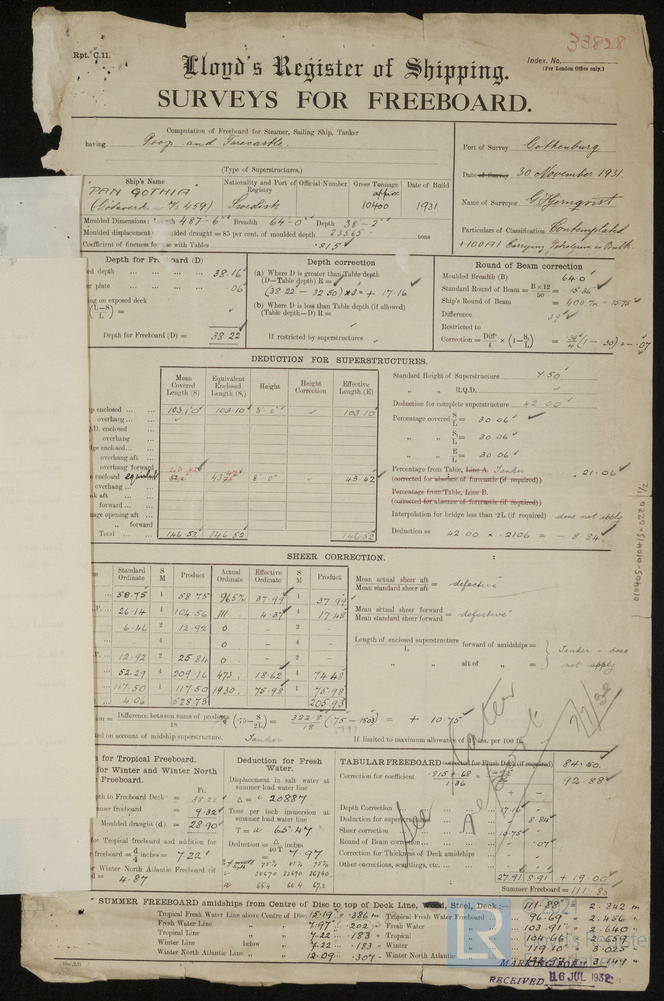 33828
Rpt. C.11.
Index. No.
(For London Office only.)
Lloyd's Register of Shipping.
SURVEYS FOR FREEBOARD.
Computation of Freeboard for Steamer, Sailing Ship, Tanker
having Poop and Forecastle.
(Type of Superstructures.)
Port of Survey Gothenburg
Date of Survey 30 November 1931.
Name of Surveyor
Particulars of Classification Contemplated
+100A1 Carrying Petroleum in Bulk.
Ship's Name
Nationality and Port of Registry
Official Number
Gross Tonnage
Date of Build
"PAN GOTHIA"
(Götaverk - No 459)
Swedish
approx
10400
1931
Moulded Dimensions: Length 487-6" Breadth 64-0" Depth 38-2"
Moulded displacement moulded draught = 85 per cent. of moulded depth 23365 tons
Coefficient of fineness for use with Tables .815
Depth for Freeboard (D)
depth ... 38.16
plate .06
on exposed deck
Depth for Freeboard (D) = 38.22
Depth correction
(a) Where D is greater than Table depth
(D−Table depth) R =
(38.22 − 32.50) × 3 = + 17.16
(b) Where D is less than Table depth (if allowed)
(Table depth−D) R =
If restricted by superstructures
Round of Beam correction
Moulded Breadth (B) 64.0
Standard Round of Beam = B×12/50 = 15.36
Ship's Round of Beam =
Difference
Restricted to
Correction = Diff/4 × (1 − S/L) = = −.07
DEDUCTION FOR SUPERSTRUCTURES.
Mean Covered Length (S)
Equivalent Enclosed Length (S₁)
Height
Height Correction
Effective Length (E)
enclosed ... 103.10 103.10 8'-0" 103.10
overhang
enclosed
overhang
enclosed ...
overhang aft ...
overhang forward
enclosed equivalent 8'-0" 43.42
overhang ...
aft ...
forward ...
opening aft ...
" forward
Total ... 146.52 146.52 146.52
Standard Height of Superstructure 7.50
" " R.Q.D.
Deduction for complete superstructure 42.00
Percentage covered S/L = 30.06
" " S₁/L = 30.06
" " E/L = 30.06
Percentage from Table, Line A. Tanker
(corrected for absence of forecastle (if required)) 21.06
Percentage from Table, Line B.
(corrected for absence of forecastle (if required))
Interpolation for bridge less than .2L (if required) does not apply
Deduction = 42.00 × .2106 = − 8.84
SHEER CORRECTION.
Standard Ordinate
S M
Product
Actual Ordinate
Effective Ordinate
S M
Product
58.75 1 58.75 37.99 1 37.99
26.14 4 104.56 111 4.37 4 17.48
6.46 2 12.92 0 - 2 -
4 0 - 4 -
12.92 2 25.84 0 - 2 -
52.29 4 209.16 473 18.62 4 74.48
117.50 1 117.50 1930 75.98 1 75.98
528.73 205.93
Mean actual sheer aft / Mean standard sheer aft = defective
Mean actual sheer forward / Mean standard sheer forward = defective
Length of enclosed superstructure / L forward of amidships =
" " aft of " =
Tanker - does not apply
= Difference between sums of products/18 (.75 − S/2L) = 322.8/18 (.75 − .1503) = + 10.75
on account of midship superstructure. Tanker
If limited to maximum allowance of 1½ ins. per 100 ft.
for Tropical Freeboard.
for Winter and Winter North
Freeboard.
Ft.
to Freeboard Deck = 38.22
freeboard = 9.32
Moulded draught (d) = 28.90
for Tropical freeboard and addition for
freeboard = d/4 inches = 7.22
Winter North Atlantic Freeboard (if
= 4.87
Deduction for Fresh Water.
Displacement in salt water at summer load water line
Δ = 20887
Tons per inch immersion at summer load water line
T = 65.47
Deduction = Δ/40T inches
= 7.97
TABULAR FREEBOARD corrected for Flush Deck (if required) 84.50
Correction for coefficient .815 + .68 / 1.36 92.88
+ −
Depth Correction 17.16
Deduction for superstructures 8.84
Sheer correction 10.75
Round of Beam correction .07
Correction for Thickness of Deck amidships
Other corrections, scantlings, etc.
27.91 8.91 + 19.00
Summer Freeboard = 111.88
See
SUMMER FREEBOARD amidships from Centre of Disc to top of Deck Line, Wood, Steel, Deck:— 111.88" 2.842 m
Tropical Fresh Water Line above Centre of Disc 15.19 = .386 m Tropical Fresh Water Freeboard 96.69 = 2.456
Fresh Water Line " " 7.97 = .202 Fresh Water " 103.91 = 2.640
Tropical Line " " 7.22 = .183 Tropical " 104.66 = 2.659
Winter Line below " 7.22 = .183 Winter " 119.10 = 3.025
Winter North Atlantic Line " " 12.09 = .307 Winter North Atlantic " = 3.149
RECEIVED 16 JUL 1932
LR
010405-010413-0220 1/2